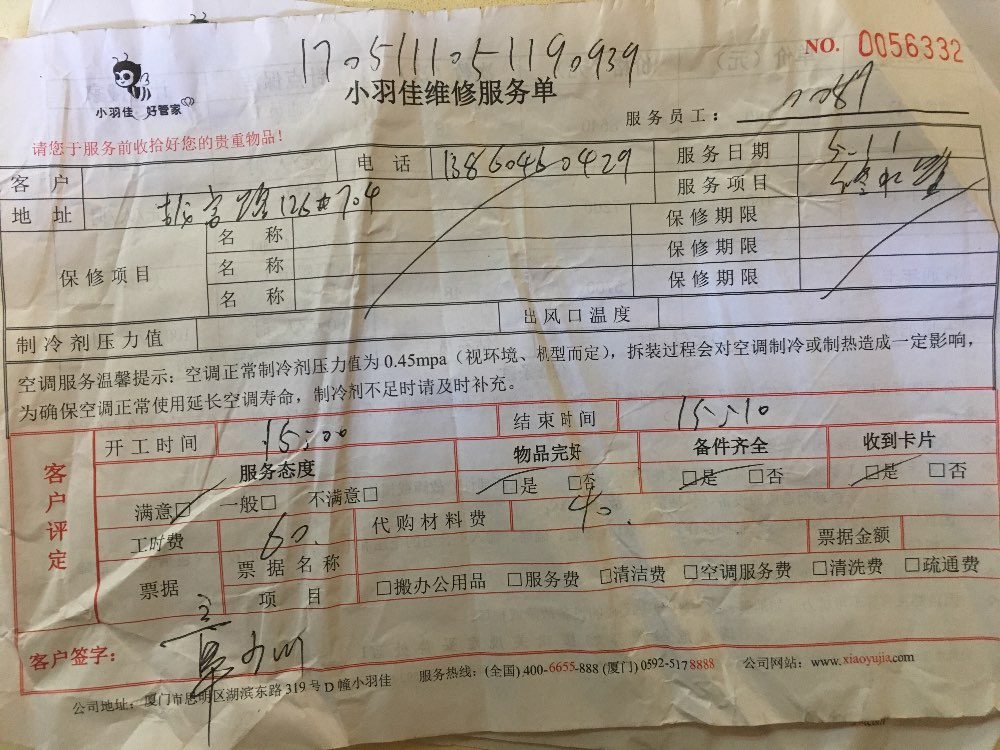 1705111051190939
NO. 0056332
小羽佳 好管家
小羽佳维修服务单
服务员工：
请您于服务前收拾好您的贵重物品！
客户 电话 13860460429 服务日期 5-11
地址 126 704 服务项目
保修项目 名称 保修期限
名称 保修期限
名称 保修期限
制冷剂压力值 出风口温度
空调服务温馨提示：空调正常制冷剂压力值为0.45mpa（视环境、机型而定），拆装过程会对空调制冷或制热造成一定影响，
为确保空调正常使用延长空调寿命，制冷剂不足时请及时补充。
客户评定
开工时间 15:00 结束时间 15:10
服务态度 物品完好 备件齐全 收到卡片
满意□ 一般□ 不满意□ □是 □否 □是 □否 □是 □否
工时费 60. 代购材料费 40.
票据 票据名称 票据金额
项目 □搬办公用品 □服务费 □清洁费 □空调服务费 □清洗费 □疏通费
客户签字：
公司地址：厦门市思明区湖滨东路319号D幢小羽佳 服务热线：(全国) 400-6655-888 (厦门) 0592-5178888 公司网站：www.xiaoyujia.com